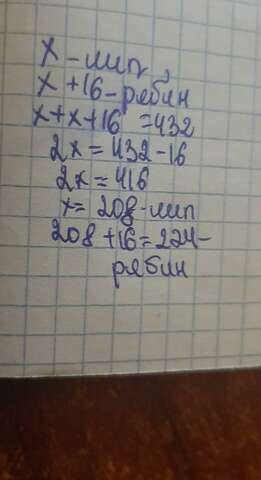 x - лип
x + 16 - рябин
x + x + 16 = 432
2x = 432 - 16
2x = 416
x = 208 - лип
208 + 16 = 224 -
рябин